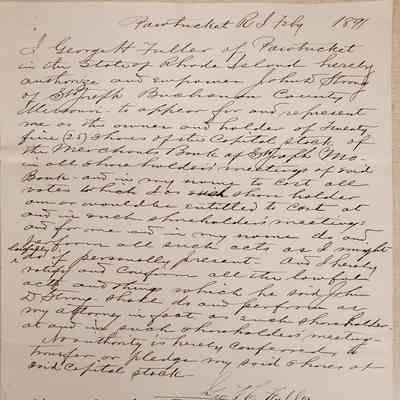 Pawtucket R I Feby 1891
I George H Fuller of Pawtucket
in the State of Rhode Island hereby
authorize and empower John D Strong
of St Joseph Buchanan County
Missouri to appear for and represent
me as the owner and holder of Twenty
five (25) Shares of the Capital stock of
the Merchants Bank of St Joseph Mo.
in all shareholders meetings of said
Bank and in my name to cast all
votes which I as such share holder
am or would be entitled to cast at
and in such shareholders meetings
and for me and in my name do and
perform all such acts as I might
do if personally present. And I hereby
ratify and confirm all the lawful
acts and things which he said John
D Strong shall do and perform as
my attorney in fact as such shareholder
at and in such shareholders meeting.
No authority is hereby conferred to
transfer or pledge my said shares of
said Capital stock
Geo H Fuller